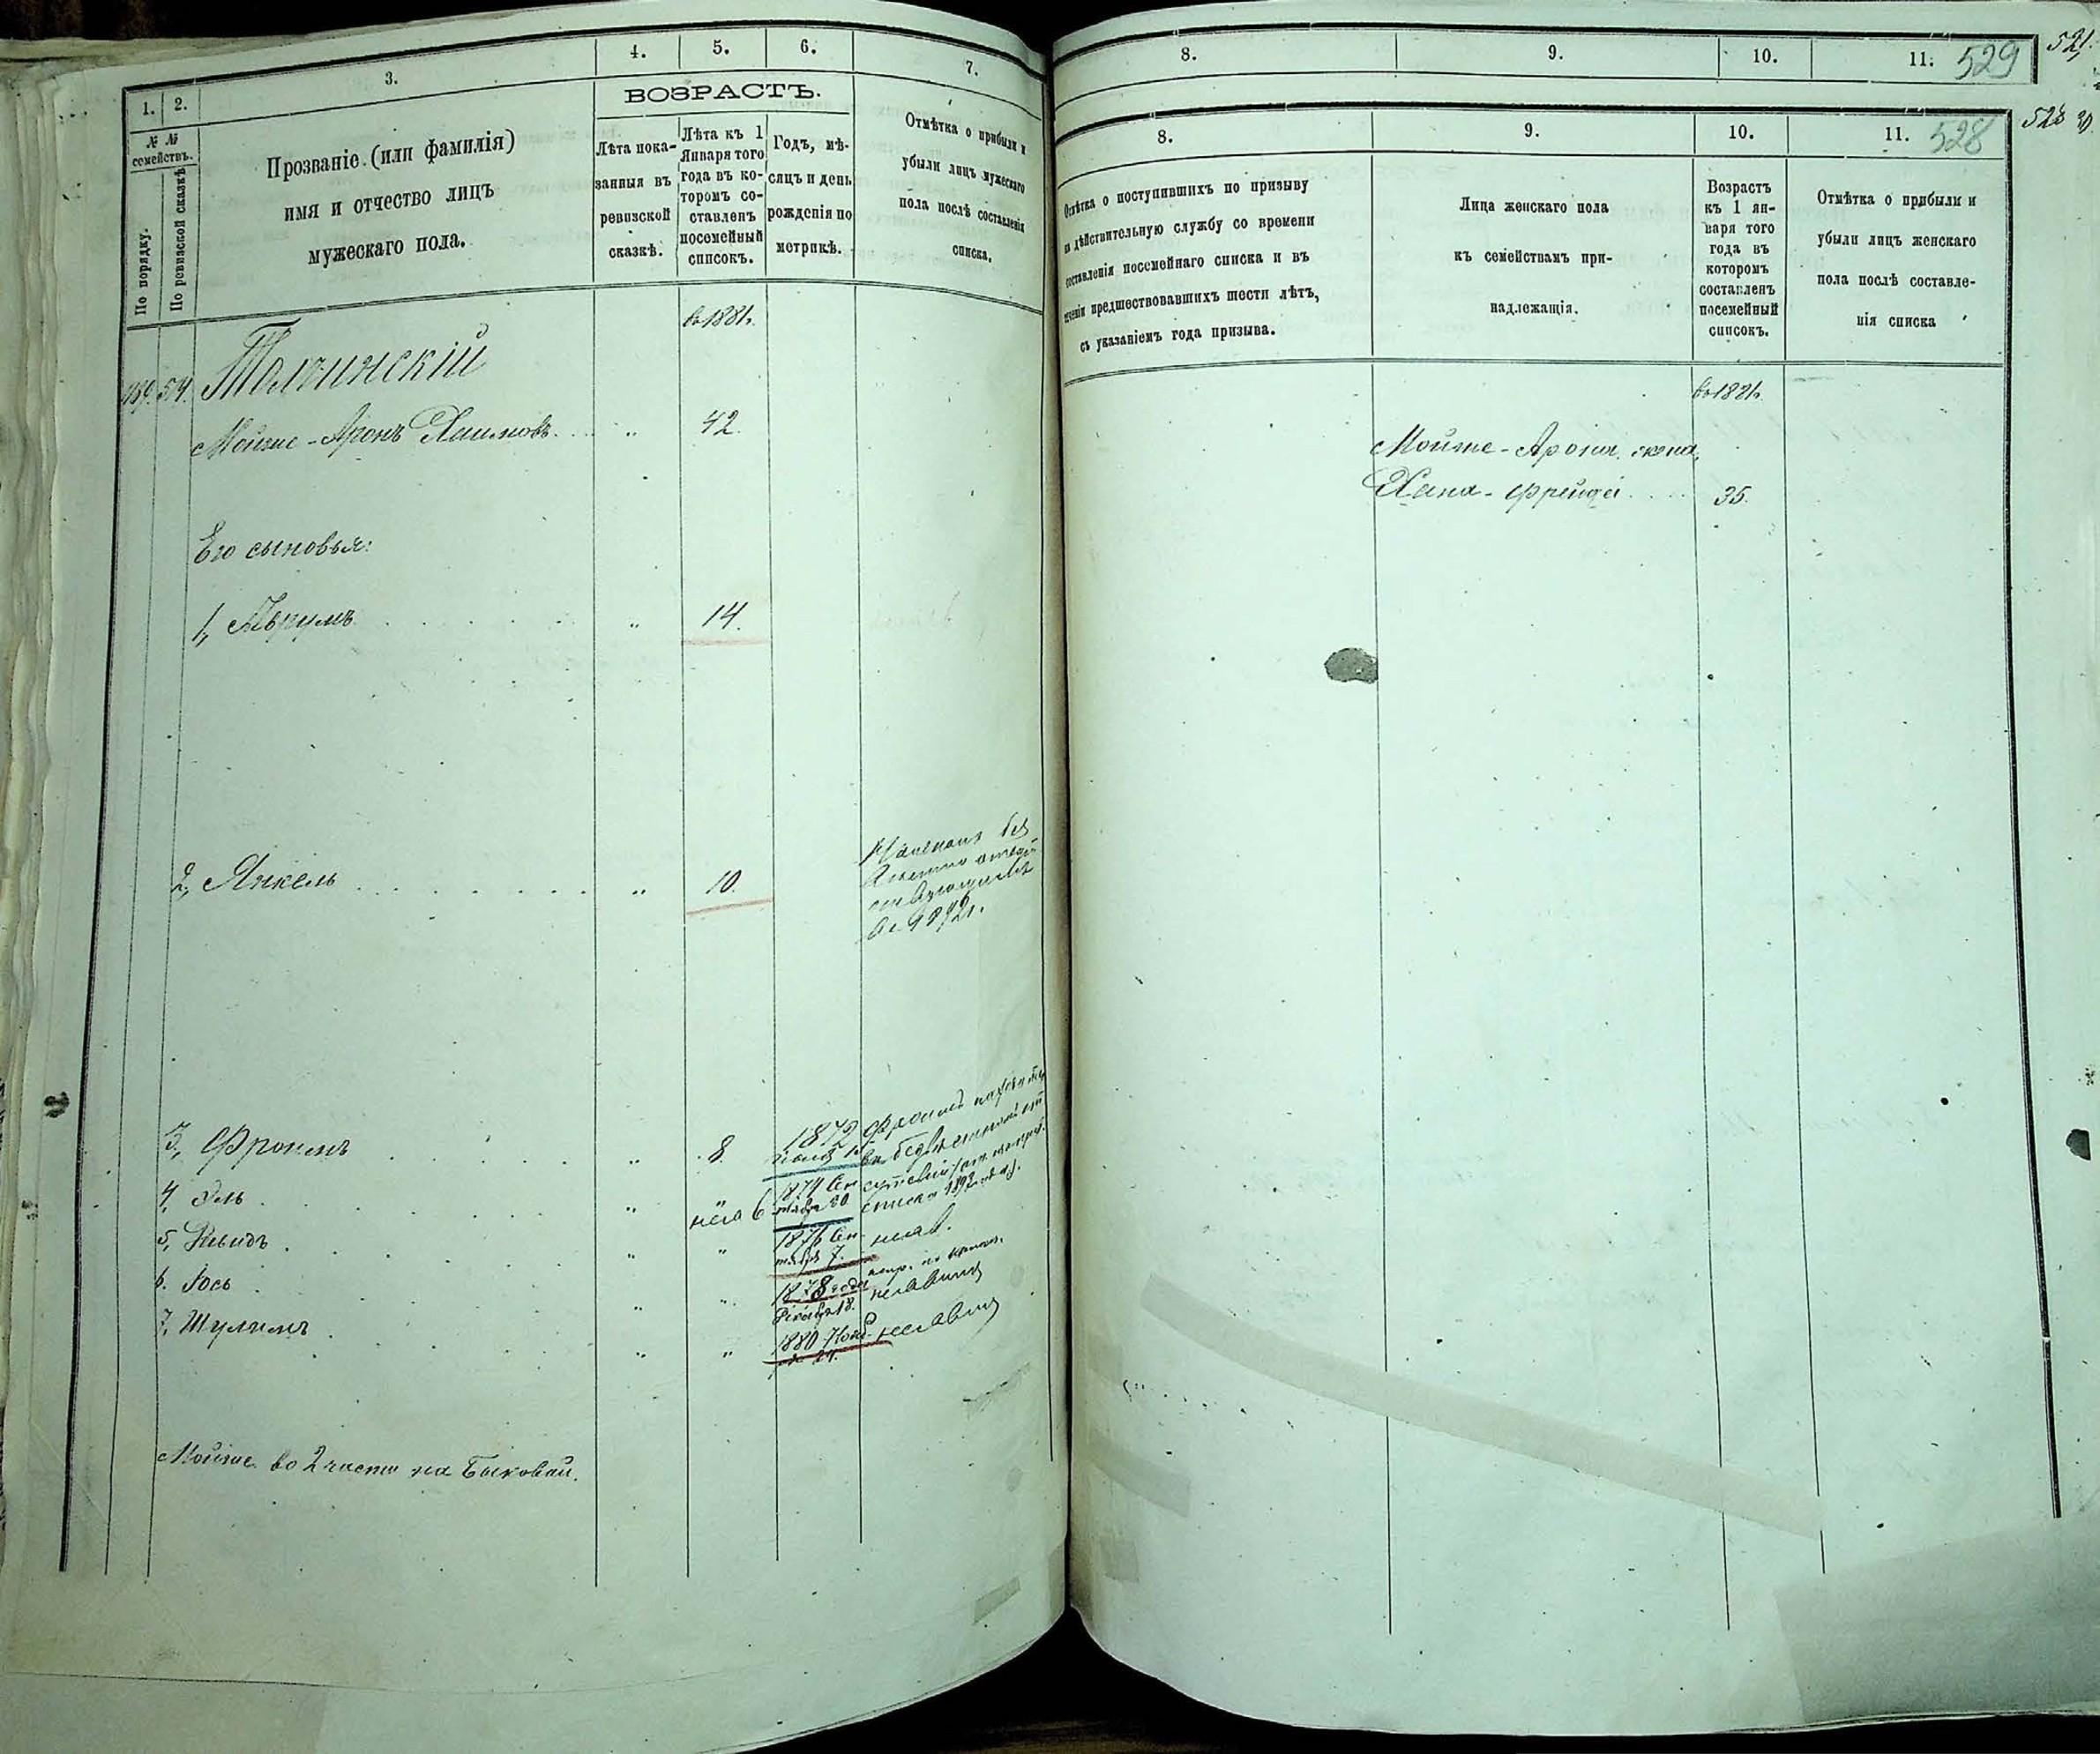 1. 2. 3. 4. 5. 6. 7.
№ № семействъ.
По порядку.
По ревизской сказкѣ
Прозваніе (или фамилія)
имя и отчество лицъ
мужескаго пола.
ВОЗРАСТЪ.
Лѣта пока-
занныя въ
ревизской
сказкѣ.
Лѣта къ 1
Января того
года въ ко-
торомъ со-
ставленъ
посемейный
списокъ.
Годъ, мѣ-
сяцъ и день
рожденія по
метрикѣ.
Отмѣтка о прибыли и
убыли лицъ мужескаго
пола послѣ составленія
списка.
въ 1881г.
514. Толчинскій
Мойше-Аронъ Хаимовъ. 42.
Его сыновья:
1, Аврумъ 14.
2, Янкель 10.
3, Фроимъ 8. 1872
4, Эль 1874 Сен
тября 20
5, Давидъ 1876 Сен
тября 7.
6. Іось 1878 года
Декабря 18.
7, Шулимъ 1880 Нояб
ря 24.
Мойше во 2 части на Быковой.
8. 9. 10. 11. 529
521
8. 9. 10. 11. 528
528
Отмѣтка о поступившихъ по призыву
на дѣйствительную службу со времени
составленія посемейнаго списка и въ
теченіи предшествовавшихъ шести лѣтъ,
съ указаніемъ года призыва.
Лица женскаго пола
къ семействамъ при-
надлежащія.
Возрастъ
къ 1 ян-
варя того
года въ
которомъ
составленъ
посемейный
списокъ.
Отмѣтка о прибыли и
убыли лицъ женскаго
пола послѣ составле-
нія списка
въ 1881г.
Мойше-Арона жена,
Хана-Фрейда 35.